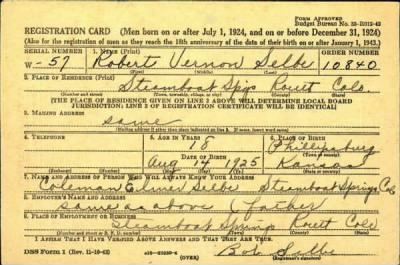 FORM APPROVED
Budget Bureau No. 33-R012-42
REGISTRATION CARD (Men born on or after July 1, 1924, and on or before December 31, 1924)
(Also for the registration of men as they reach the 18th anniversary of the date of their birth on or after January 1, 1943.)
SERIAL NUMBER 1. NAME (Print) ORDER NUMBER
W-57 Robert Vernon Selbe 10840
(First) (Middle) (Last)
2. PLACE OF RESIDENCE (Print)
Steamboat Spgs Routt Colo.
(Number and street) (Town, township, village, or city) (County) (State)
[THE PLACE OF RESIDENCE GIVEN ON LINE 2 ABOVE WILL DETERMINE LOCAL BOARD
JURISDICTION; LINE 2 OF REGISTRATION CERTIFICATE WILL BE IDENTICAL]
3. MAILING ADDRESS
same
[Mailing address if other than place indicated on line 2. If same, insert word same]
4. TELEPHONE 5. AGE IN YEARS 6. PLACE OF BIRTH
18 Phillipsburg
DATE OF BIRTH (Town or county)
Aug 14 1925 Kansas
(Exchange) (Number) (Mo.) (Day) (Yr.) (State or country)
7. NAME AND ADDRESS OF PERSON WHO WILL ALWAYS KNOW YOUR ADDRESS
Coleman Elmer Selbe Steamboat Springs, Col
8. EMPLOYER'S NAME AND ADDRESS
same as above (father)
9. PLACE OF EMPLOYMENT OR BUSINESS
Steamboat Springs Routt Colo
(Number and street or R. F. D. number) (Town) (County) (State)
I AFFIRM THAT I HAVE VERIFIED ABOVE ANSWERS AND THAT THEY ARE TRUE.
DSS Form 1 (Rev. 11-16-42) (OVER) Bob Selbe